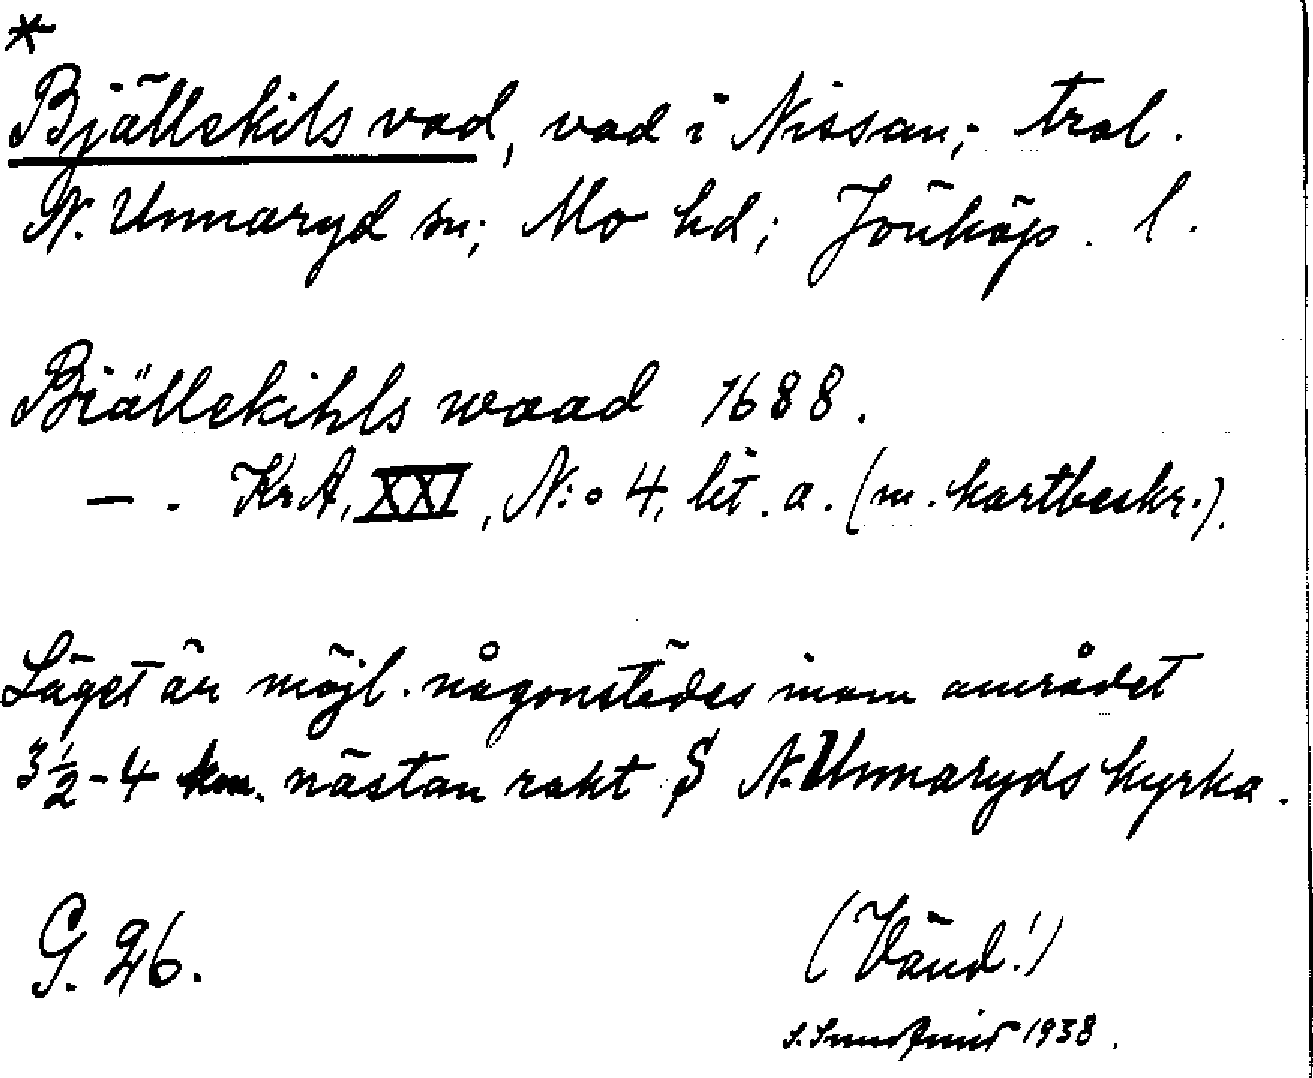 *
Bjällekils vad, vad i Nissan; trol.
N. Unnaryd sn; Mo hd; Jönköp. l.
Biällekihls waad 1688.
— . KrA, XXI, N:o 4, lit. a. (m. kartbeskr.).
Läget är möjl. någonstädes inom området
3½-4 km. nästan rakt S N. Unnaryds kyrka.
G. 26.
(Vänd!)
1938.